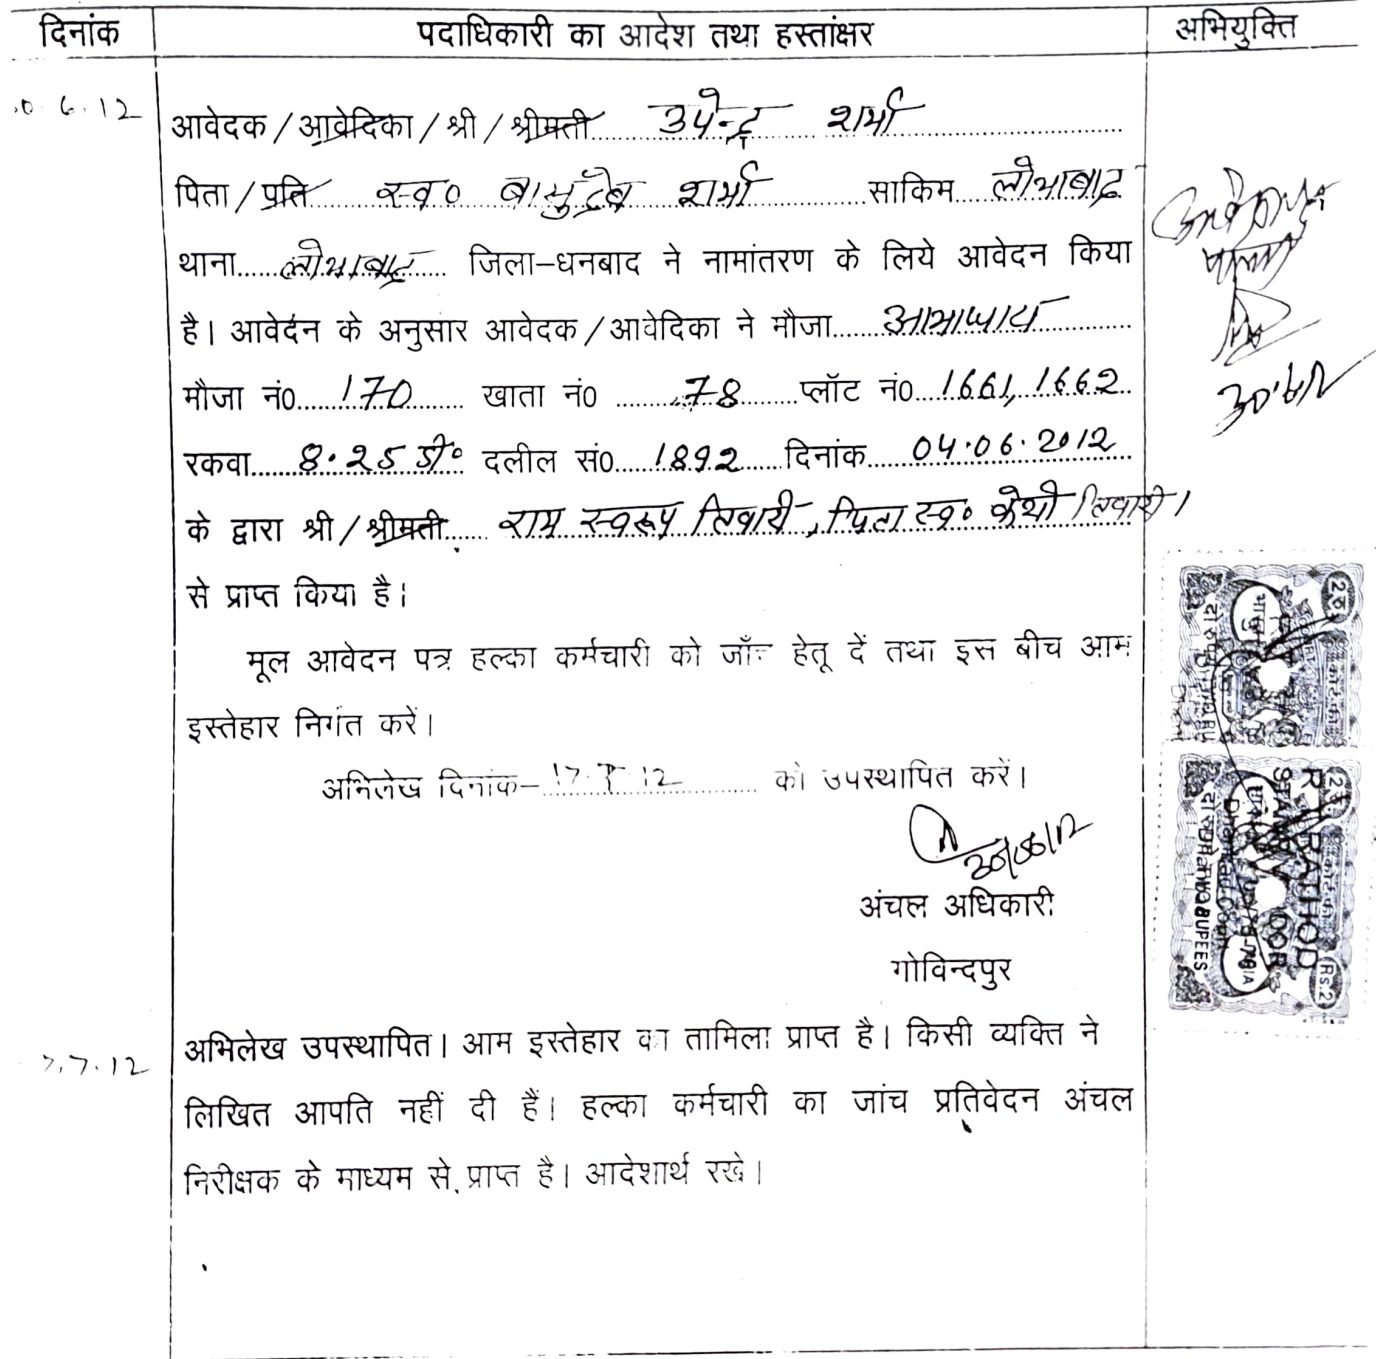 दिनांक
पदाधिकारी का आदेश तथा हस्तांक्षर
अभियुक्ति
6.12
आवेदक / आवेदिका / श्री / श्रीमती उपेन्द्र शर्मा
पिता / प्रति स्व० बासुदेब शर्मा साकिम लोयाबाद
थाना लोयाबाद जिला-धनबाद ने नामांतरण के लिये आवेदन किया
है। आवेदन के अनुसार आवेदक / आवेदिका ने मौजा
मौजा नं0 170 खाता नं0 78 प्लॉट नं0 1661, 1662
रकवा 8.25 डी० दलील सं0 1892 दिनांक 04.06.2012
के द्वारा श्री / श्रीमती राम स्वरूप तिवारी, पिता स्व० केशो तिवारी।
से प्राप्त किया है।
मूल आवेदन पत्र हल्का कर्मचारी को जाँच हेतू दें तथा इस बीच आम
इस्तेहार निर्गत करें।
अभिलेख दिनांक- 17.7.12 को उपस्थापित करें।
30/06/12
अंचल अधिकारी
गोविन्दपुर
7.7.12
अभिलेख उपस्थापित। आम इस्तेहार का तामिला प्राप्त है। किसी व्यक्ति ने
लिखित आपति नहीं दी हैं। हल्का कर्मचारी का जांच प्रतिवेदन अंचल
निरीक्षक के माध्यम से प्राप्त है। आदेशार्थ रखे।
RATHOD
RUPEES
Rs.2